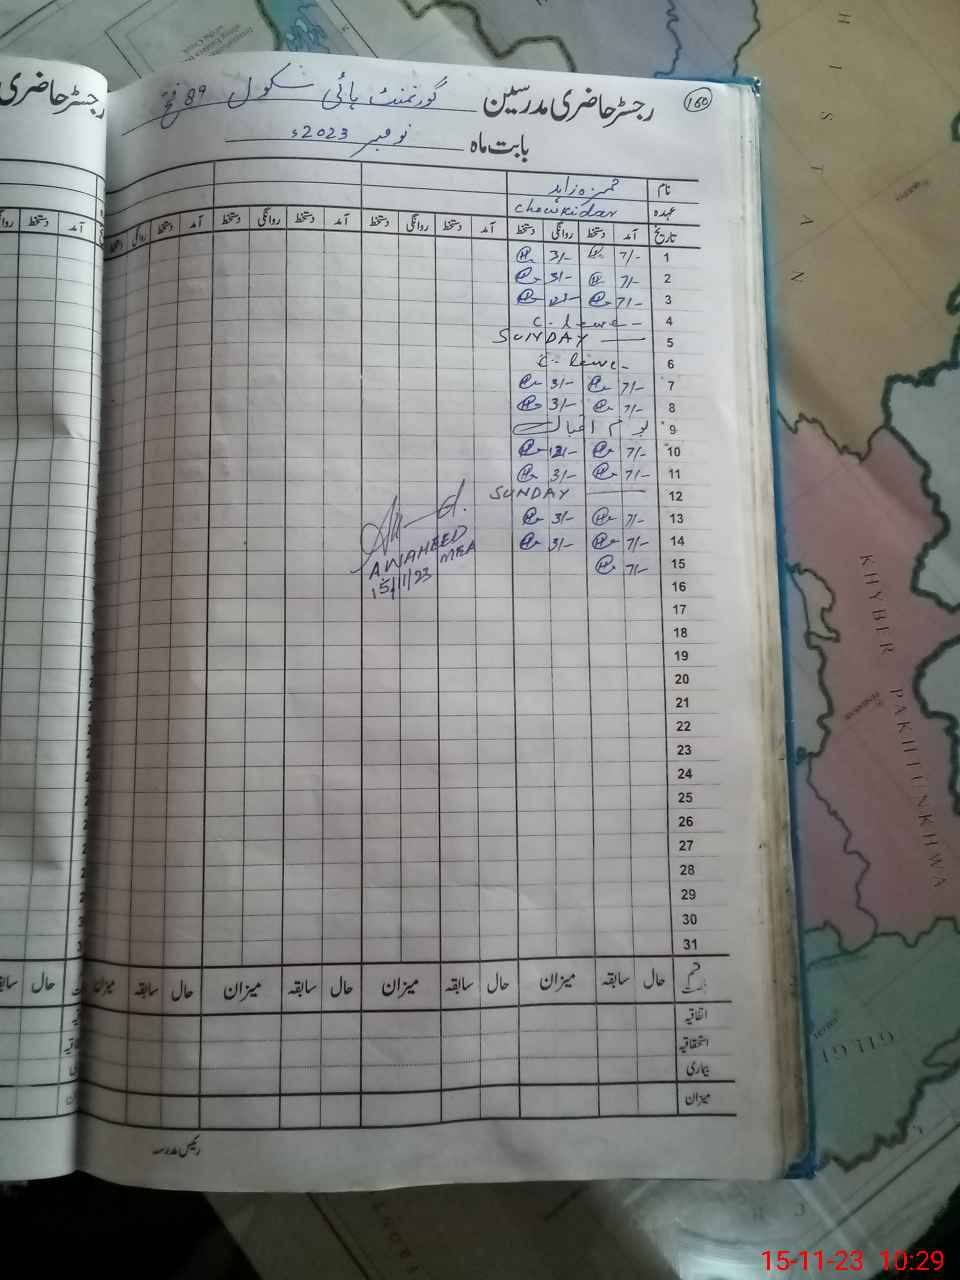 160
رجسٹر حاضری مدرسین گورنمنٹ ہائی سکول 89 فتح
بابت ماہ نومبر 2023ء
نام حمزہ زاہد
عہدہ Chowkidar
تاریخ آمد دستخط روانگی دستخط آمد دستخط روانگی دستخط آمد دستخط روانگی دستخط آمد دستخط روانگی دستخط
1 7/- 3/-
2 7/- 3/-
3 7/- 12/-
4 C. leave -
5 SUNDAY
6 C. leave -
7 7/- 3/-
8 7/- 3/-
9 یوم اقبال
10 7/- 12/-
11 7/- 3/-
12 SUNDAY
13 7/- 3/-
14 7/- 3/-
15 7/-
A WAHEED
15/11/23 MEA
16
17
18
19
20
21
22
23
24
25
26
27
28
29
30
31
حال سابقہ میزان حال سابقہ میزان حال سابقہ میزان حال سابقہ میزان
اتفاقیہ
استحقاقیہ
بیماری
میزان
رئیس مدرسہ
رجسٹر حاضری
آمد دستخط
حال سابقہ
HISTAN
KHYBER PAKHTUNKHWA
GILGI
15-11-23 10:29